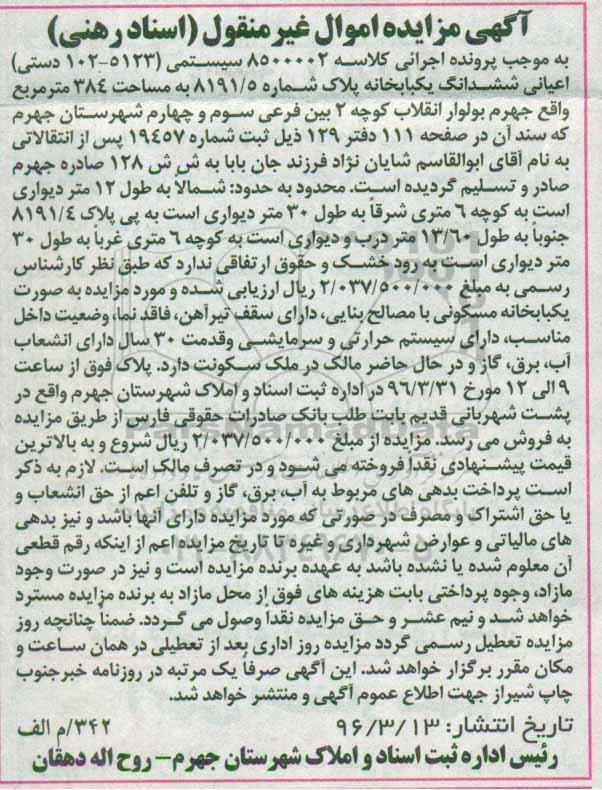 آگهی مزایده اموال غیر منقول (اسناد رهنی)
به موجب پرونده اجرائی کلاسه ۸۵۰۰۰۰۲ سیستمی (۵۱۲۳-۱۰۲ دستی)
اعیانی ششدانگ یکبابخانه پلاک شماره ۸۱۹۱/۵ به مساحت ۳۸۴ مترمربع
واقع جهرم بولوار انقلاب کوچه ۲ بین فرعی سوم و چهارم شهرستان جهرم
که سند آن در صفحه ۱۱۱ دفتر ۱۲۹ ذیل ثبت شماره ۱۹۴۵۷ پس از انتقالاتی
به نام آقای ابوالقاسم شایان نژاد فرزند جان بابا به ش ش ۱۲۸ صادره جهرم
صادر و تسلیم گردیده است. محدود به حدود: شمالاً به طول ۱۲ متر دیواری
است به کوچه ۶ متری شرقاً به طول ۳۰ متر دیواری است به پی پلاک ۸۱۹۱/۴
جنوباً به طول ۱۳/۶۰ متر درب و دیواری است به کوچه ۶ متری غرباً به طول ۳۰
متر دیواری است به رود خشک و حقوق ارتفاقی ندارد که طبق نظر کارشناس
رسمی به مبلغ ۲/۰۳۷/۵۰۰/۰۰۰ ریال ارزیابی شده و مورد مزایده به صورت
یکبابخانه مسکونی با مصالح بنایی، دارای سقف تیرآهن، فاقد نما، وضعیت داخل
مناسب، دارای سیستم حرارتی و سرمایشی وقدمت ۳۰ سال دارای انشعاب
آب، برق، گاز و در حال حاضر مالک در ملک سکونت دارد. پلاک فوق از ساعت
۹ الی ۱۲ مورخ ۹۶/۳/۳۱ در اداره ثبت اسناد و املاک شهرستان جهرم واقع در
پشت شهربانی قدیم بابت طلب بانک صادرات حقوقی فارس از طریق مزایده
به فروش می رسد. مزایده از مبلغ ۲/۰۳۷/۵۰۰/۰۰۰ ریال شروع و به بالاترین
قیمت پیشنهادی نقداً فروخته می شود و در تصرف مالک است. لازم به ذکر
است پرداخت بدهی های مربوط به آب، برق، گاز و تلفن اعم از حق انشعاب و
یا حق اشتراک و مصرف در صورتی که مورد مزایده دارای آنها باشد و نیز بدهی
های مالیاتی و عوارض شهرداری و غیره تا تاریخ مزایده اعم از اینکه رقم قطعی
آن معلوم شده یا نشده باشد به عهده برنده مزایده است و نیز در صورت وجود
مازاد، وجوه پرداختی بابت هزینه های فوق از محل مازاد به برنده مزایده مسترد
خواهد شد و نیم عشر و حق مزایده نقداً وصول می گردد. ضمناً چنانچه روز
مزایده تعطیل رسمی گردد مزایده روز اداری بعد از تعطیلی در همان ساعت و
مکان مقرر برگزار خواهد شد. این آگهی صرفاً یک مرتبه در روزنامه خبرجنوب
چاپ شیراز جهت اطلاع عموم آگهی و منتشر خواهد شد.
تاریخ انتشار: ۹۶/۳/۱۳ ۳۴۲/م الف
رئیس اداره ثبت اسناد و املاک شهرستان جهرم- روح اله دهقان
ParsNamadData